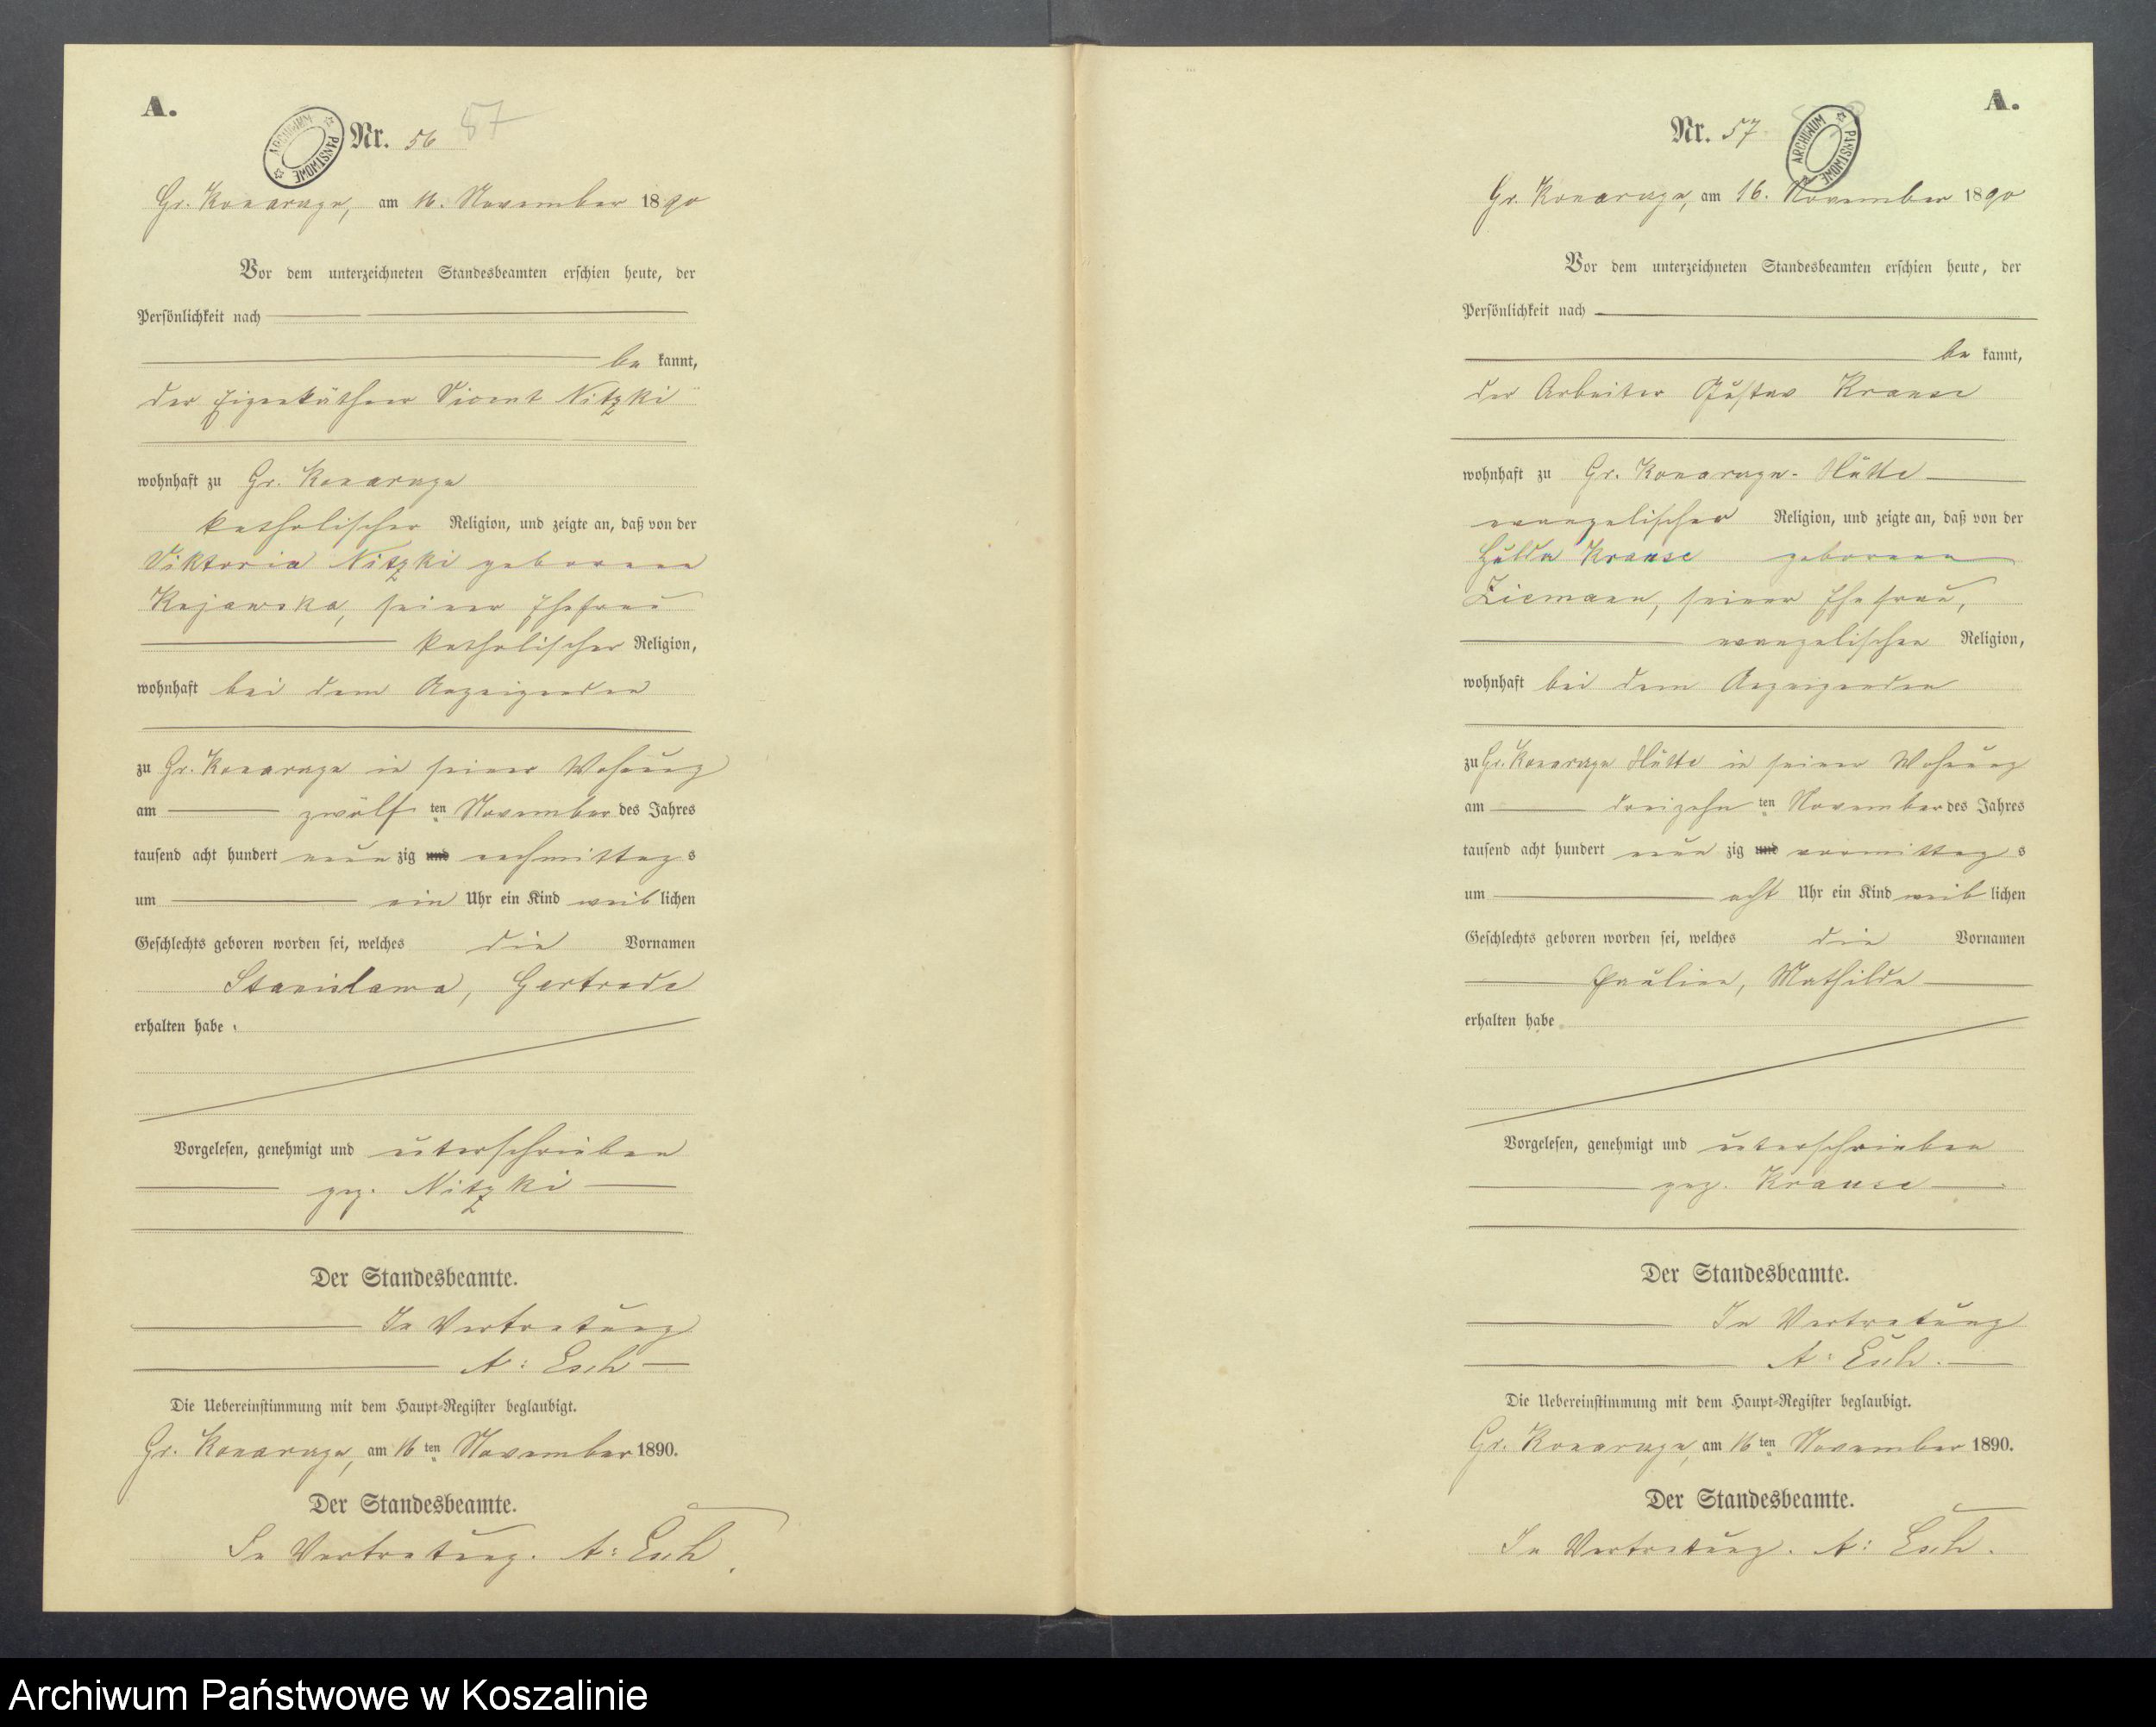 A.
ARCHIWUM PAŃSTWOWE
Nr. 56 57
Gr. Konarczyn, am 16. November 1890
Vor dem unterzeichneten Standesbeamten erschien heute, der
Persönlichkeit nach
be kannt,
der Eigenkäthner Vicent Nitzki
wohnhaft zu Gr. Konarczyn
katholischer Religion, und zeigte an, daß von der
Viktoria Nitzki geborenen
Kujawska, seiner Ehefrau
katholischer Religion,
wohnhaft bei dem Anzeigenden
zu Gr. Konarczyn in seiner Wohnung
am zwölf ten November des Jahres
tausend acht hundert neun zig und nachmittag s
um ein Uhr ein Kind weib lichen
Geschlechts geboren worden sei, welches die Vornamen
Stanislawa, Gertrude
erhalten habe
Vorgelesen, genehmigt und unterschrieben
gez. Nitzki
Der Standesbeamte.
In Vertretung
A: Esch
Die Uebereinstimmung mit dem Haupt-Register beglaubigt.
Gr. Konarczyn, am 16 ten November 1890.
Der Standesbeamte.
In Vertretung. A: Esch.
A.
Nr. 57
ARCHIWUM PAŃSTWOWE
Gr. Konarczyn, am 16. November 1890
Vor dem unterzeichneten Standesbeamten erschien heute, der
Persönlichkeit nach
be kannt,
der Arbeiter Gustav Krause
wohnhaft zu Gr. Konarczyn-Hütte
evangelischer Religion, und zeigte an, daß von der
Hulda Krause geborenen
Ziemann, seiner Ehefrau,
evangelischen Religion,
wohnhaft bei dem Anzeigenden
zu Gr. Konarczyn Hütte in seiner Wohnung
am dreizehn ten November des Jahres
tausend acht hundert neun zig und vormittag s
um acht Uhr ein Kind weib lichen
Geschlechts geboren worden sei, welches die Vornamen
Pauline, Mathilde
erhalten habe
Vorgelesen, genehmigt und unterschrieben
gez. Krause
Der Standesbeamte.
In Vertretung
A: Esch.
Die Uebereinstimmung mit dem Haupt-Register beglaubigt.
Gr. Konarczyn, am 16 ten November 1890.
Der Standesbeamte.
In Vertretung. A: Esch.
Archiwum Państwowe w Koszalinie